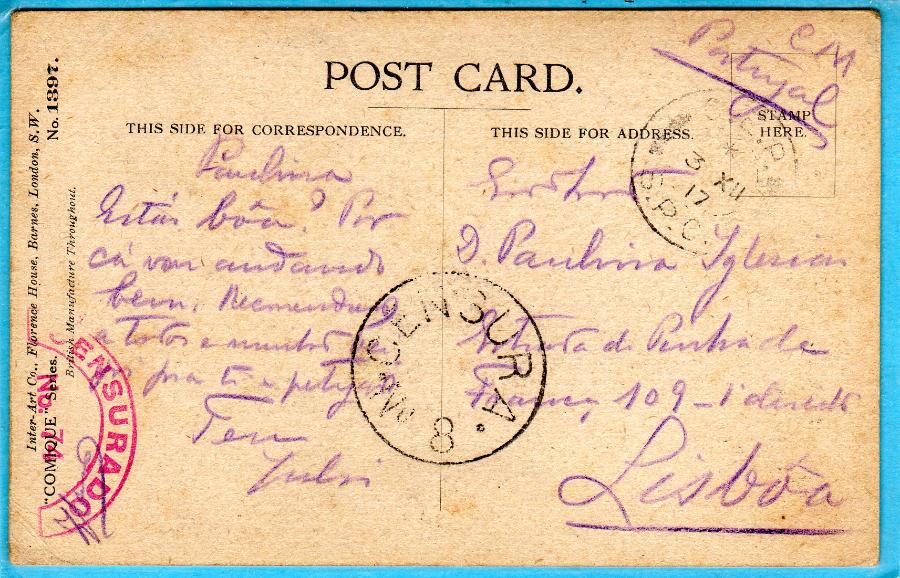 POST CARD.
THIS SIDE FOR CORRESPONDENCE.
THIS SIDE FOR ADDRESS.
STAMP
HERE.
C M
Portugal
Inter-Art Co., Florence House, Barnes, London, S.W.
No. 1397.
British Manufacture Throughout.
"COMIQUE" Series.
Paulina
Estás bôa? Por
cá vou andando
bem.
a todos e muitos
para ti a
Teu
D. Paulina Iglesias
Estrada de Penha de
França 109 - 1º direito
Lisbôa
3 XII
17
S.P.C.
CENSURA.
8
ENSURADO
No.